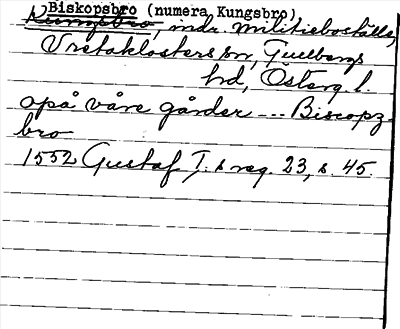 Biskopsbro (numera Kungsbro)
Kungsbro, indr. militieboställe,
Vretaklosters sn, Gullbergs
hd, Österg. l.
opå våre gårder --- Biscopz
bro
1552 Gustaf I:s reg. 23, s. 45.